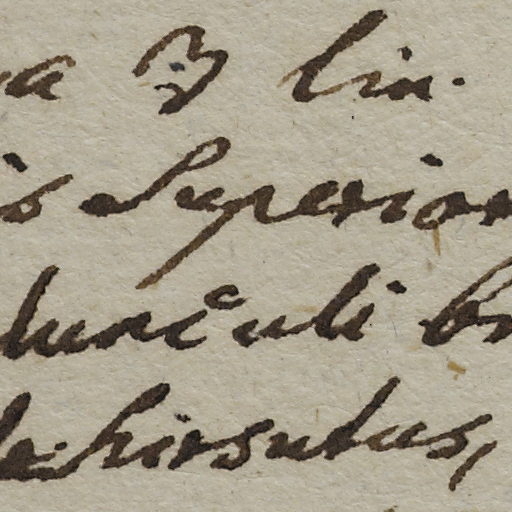 a 3 lin.
is Superior
dunculi br
le hirsutus,